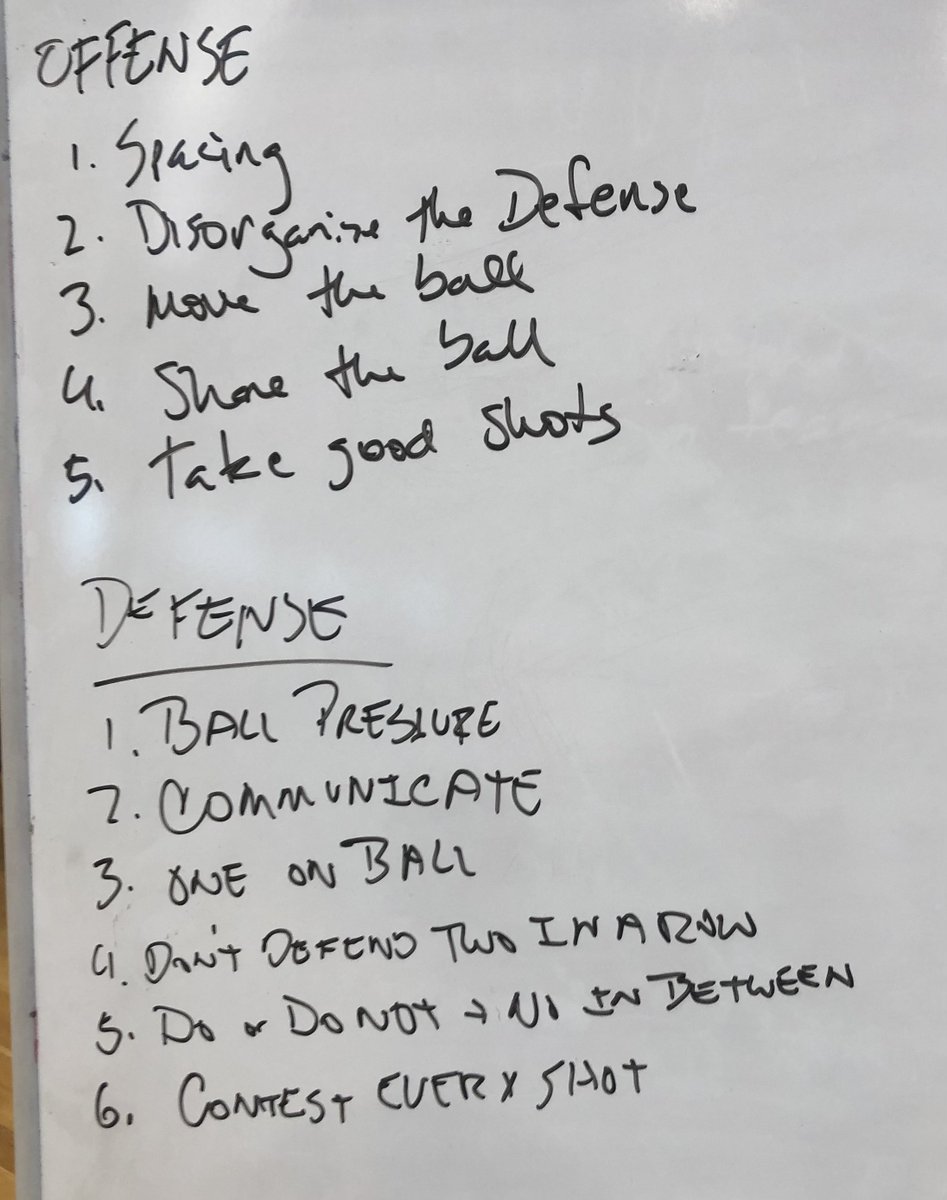 OFFENSE
1. Spacing
2. Disorganize the Defense
3. Move the ball
4. Share the ball
5. Take good shots
DEFENSE
1. BALL PRESSURE
2. COMMUNICATE
3. ONE ON BALL
4. DON'T DEFEND TWO IN A ROW
5. DO or DO NOT → NO IN BETWEEN
6. CONTEST EVERY SHOT